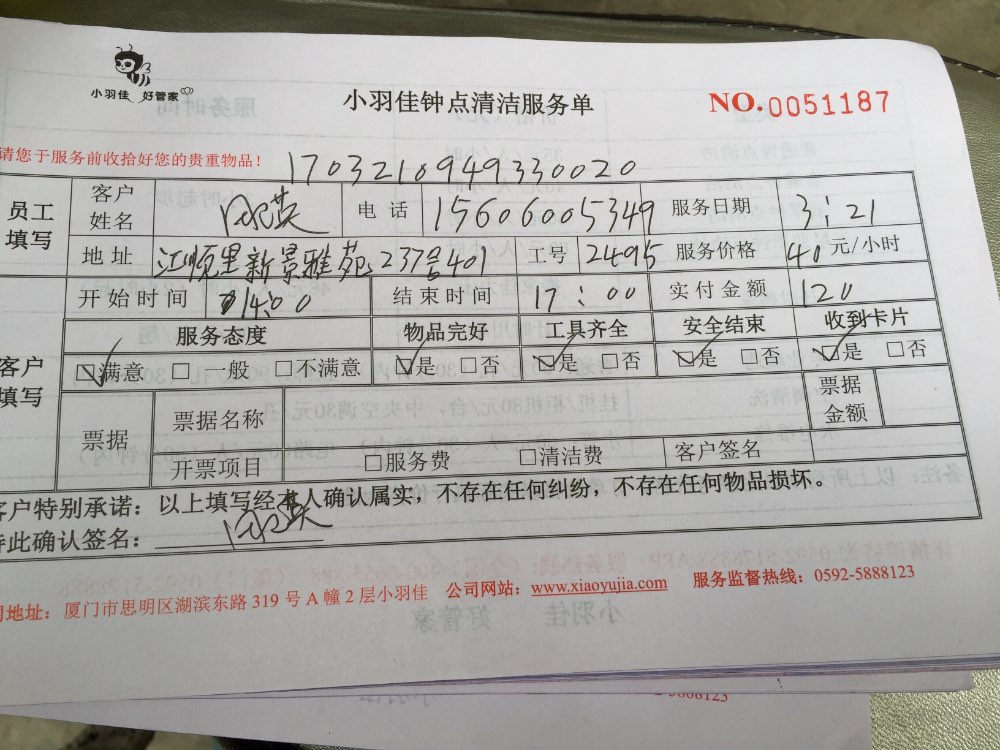 小羽佳 好管家
小羽佳钟点清洁服务单
NO.0051187
请您于服务前收拾好您的贵重物品！
170321094933​0020
员工填写 客户姓名 电话 15606005349 服务日期 3:21
地址 江顺里新景雅苑237号401 工号 2495 服务价格 40元/小时
开始时间 14:00 结束时间 17:00 实付金额 120
客户填写 服务态度 物品完好 工具齐全 安全结束 收到卡片
☑满意 □一般 □不满意 ☑是 □否 ☑是 □否 ☑是 □否 ☑是 □否
票据 票据名称 票据金额
开票项目 □服务费 □清洁费 客户签名
客户特别承诺：以上填写经本人确认属实，不存在任何纠纷，不存在任何物品损坏。
特此确认签名：
司地址：厦门市思明区湖滨东路 319 号 A 幢 2 层小羽佳 公司网站：www.xiaoyujia.com 服务监督热线：0592-5888123